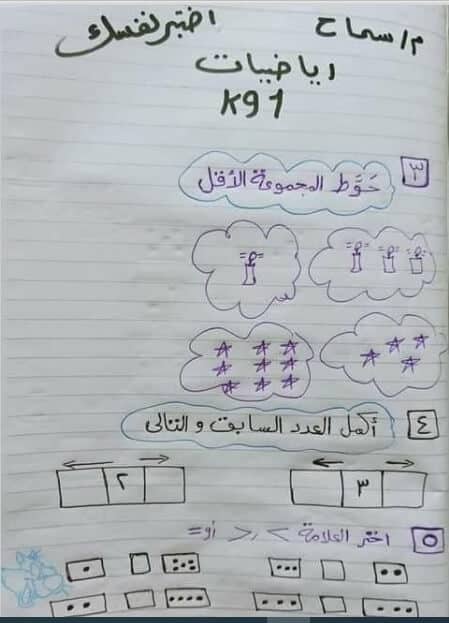 م/سماح اختبر نفسك
رياضيات
Kg1
٣ حَوَّط المجموعة الأقل
٤ أكمل العدد السابق و التالى
٣ ٢
٥ اختر العلامة > , < أو =